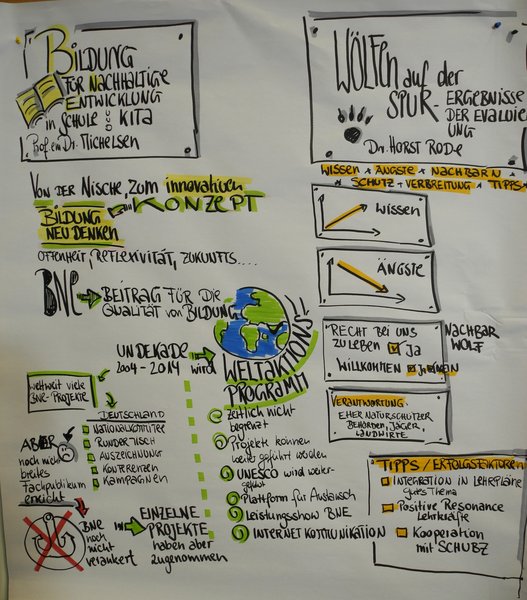 BILDUNG
FÜR NACHHALTIGE
ENTWICKLUNG
in SCHULE UND KITA
Prof. em. Dr. MICHELSEN
VON DER NISCHE, ZUM innovativen
KONZEPT
BILDUNG
NEU DENKEN
OFFENHEIT, REFLEXIVITÄT, ZUKUNFTS....
BNE
BEITRAG FÜR DIE
QUALITÄT von BILDUNG
UN DEKADE
2004 - 2014 wird
WELTAKTIONS
PROGRAMM
weltweit viele
BNE-PROJEKTE
DEUTSCHLAND
NATIONALKOMITEE
RUNDER TISCH
AUSZEICHNUNG
KONFERENZEN
KAMPAGNEN
ABER
noch nicht
breites
Fachpublikum
erreicht
BNE
noch
nicht
verankert
EINZELNE
PROJEKTE
haben aber
zugenommen
zeitlich nicht
begrenzt
Projekte können
weiter geführt werden
UNESCO wird weiter-
geführt
Plattform für Austausch
Leistungsshow BNE
INTERNET KOMMUNIKATION
WÖLFEN auf der
SPUR - ERGEBNISSE
DER EVALUIER
UNG
Dr. HORST RODE
WISSEN * ÄNGSTE * NACHBARN *
* SCHUTZ * VERBREITUNG * TIPPS *
WISSEN
ÄNGSTE
RECHT BEI UNS
ZU LEBEN JA
WILLKOMMEN
NACHBAR
WOLF
VERANTWORTUNG:
EHER NATURSCHÜTZER
BEHÖRDEN, JÄGER,
LANDWIRTE.
TIPPS / ERFOLGSFAKTOREN
INTEGRATION in LEHRPLÄNE
gutes Thema
Positive Resonance
Lehrkräfte
Kooperation
mit SCHUBZ